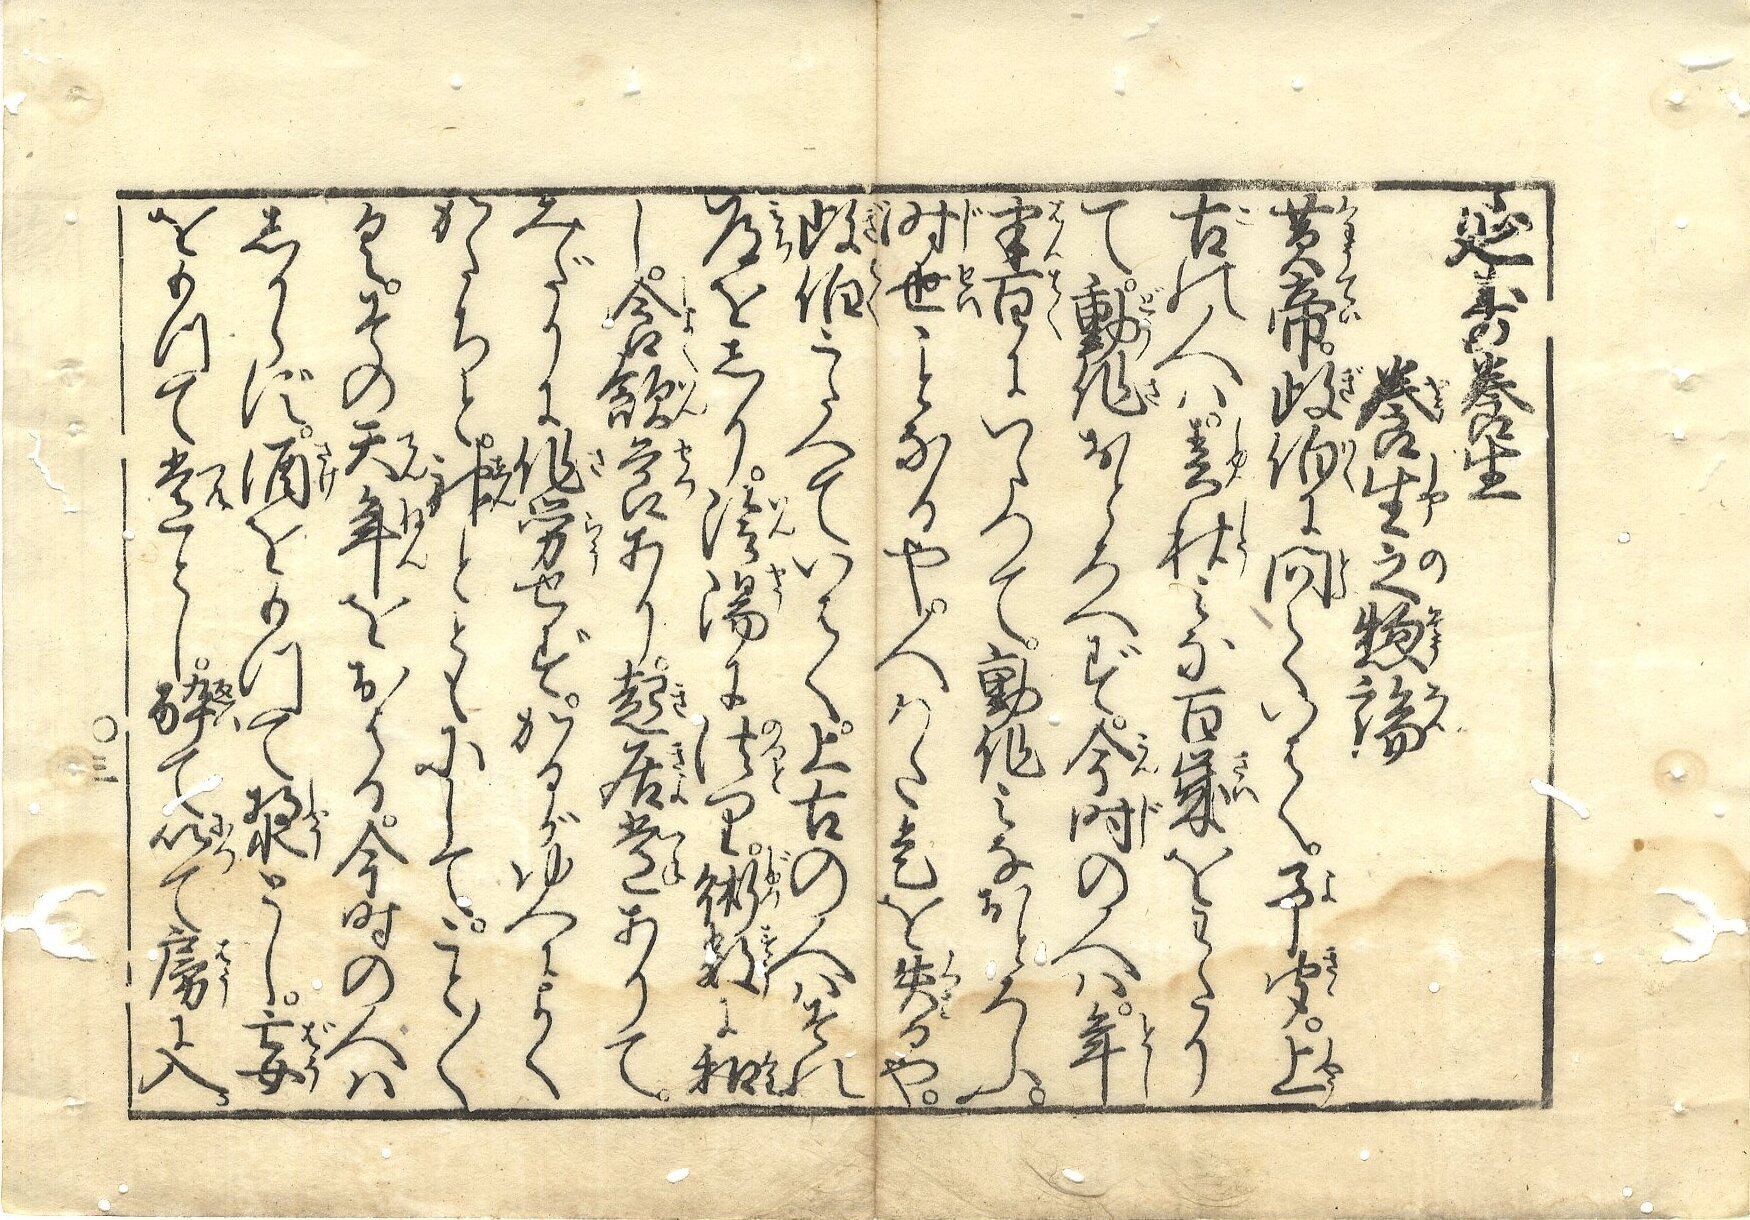 延寿養生
養生之惣論
黄帝。岐伯に問ていはく。予聞。上
古の人は。春秋みな百歳をわたり
て。動作おとろへず。今時の人は。年
半百にいたつて。動作みなおとろふ。
時世ことなるや。人はた是を失るや。
岐伯こたへていはく。上古の人はそれ
道をしり。陰陽に法り。術数に和
し。食飲節あり。起居常ありて。
みだりに作労せず。かるがゆへによく
かたちと。神とともにして。こと〴〵
く。その天年をおはる。今時の人は
しからず。酒をもつて漿とし。妄
をもつて常とし。酔て以て房に入。
〇三